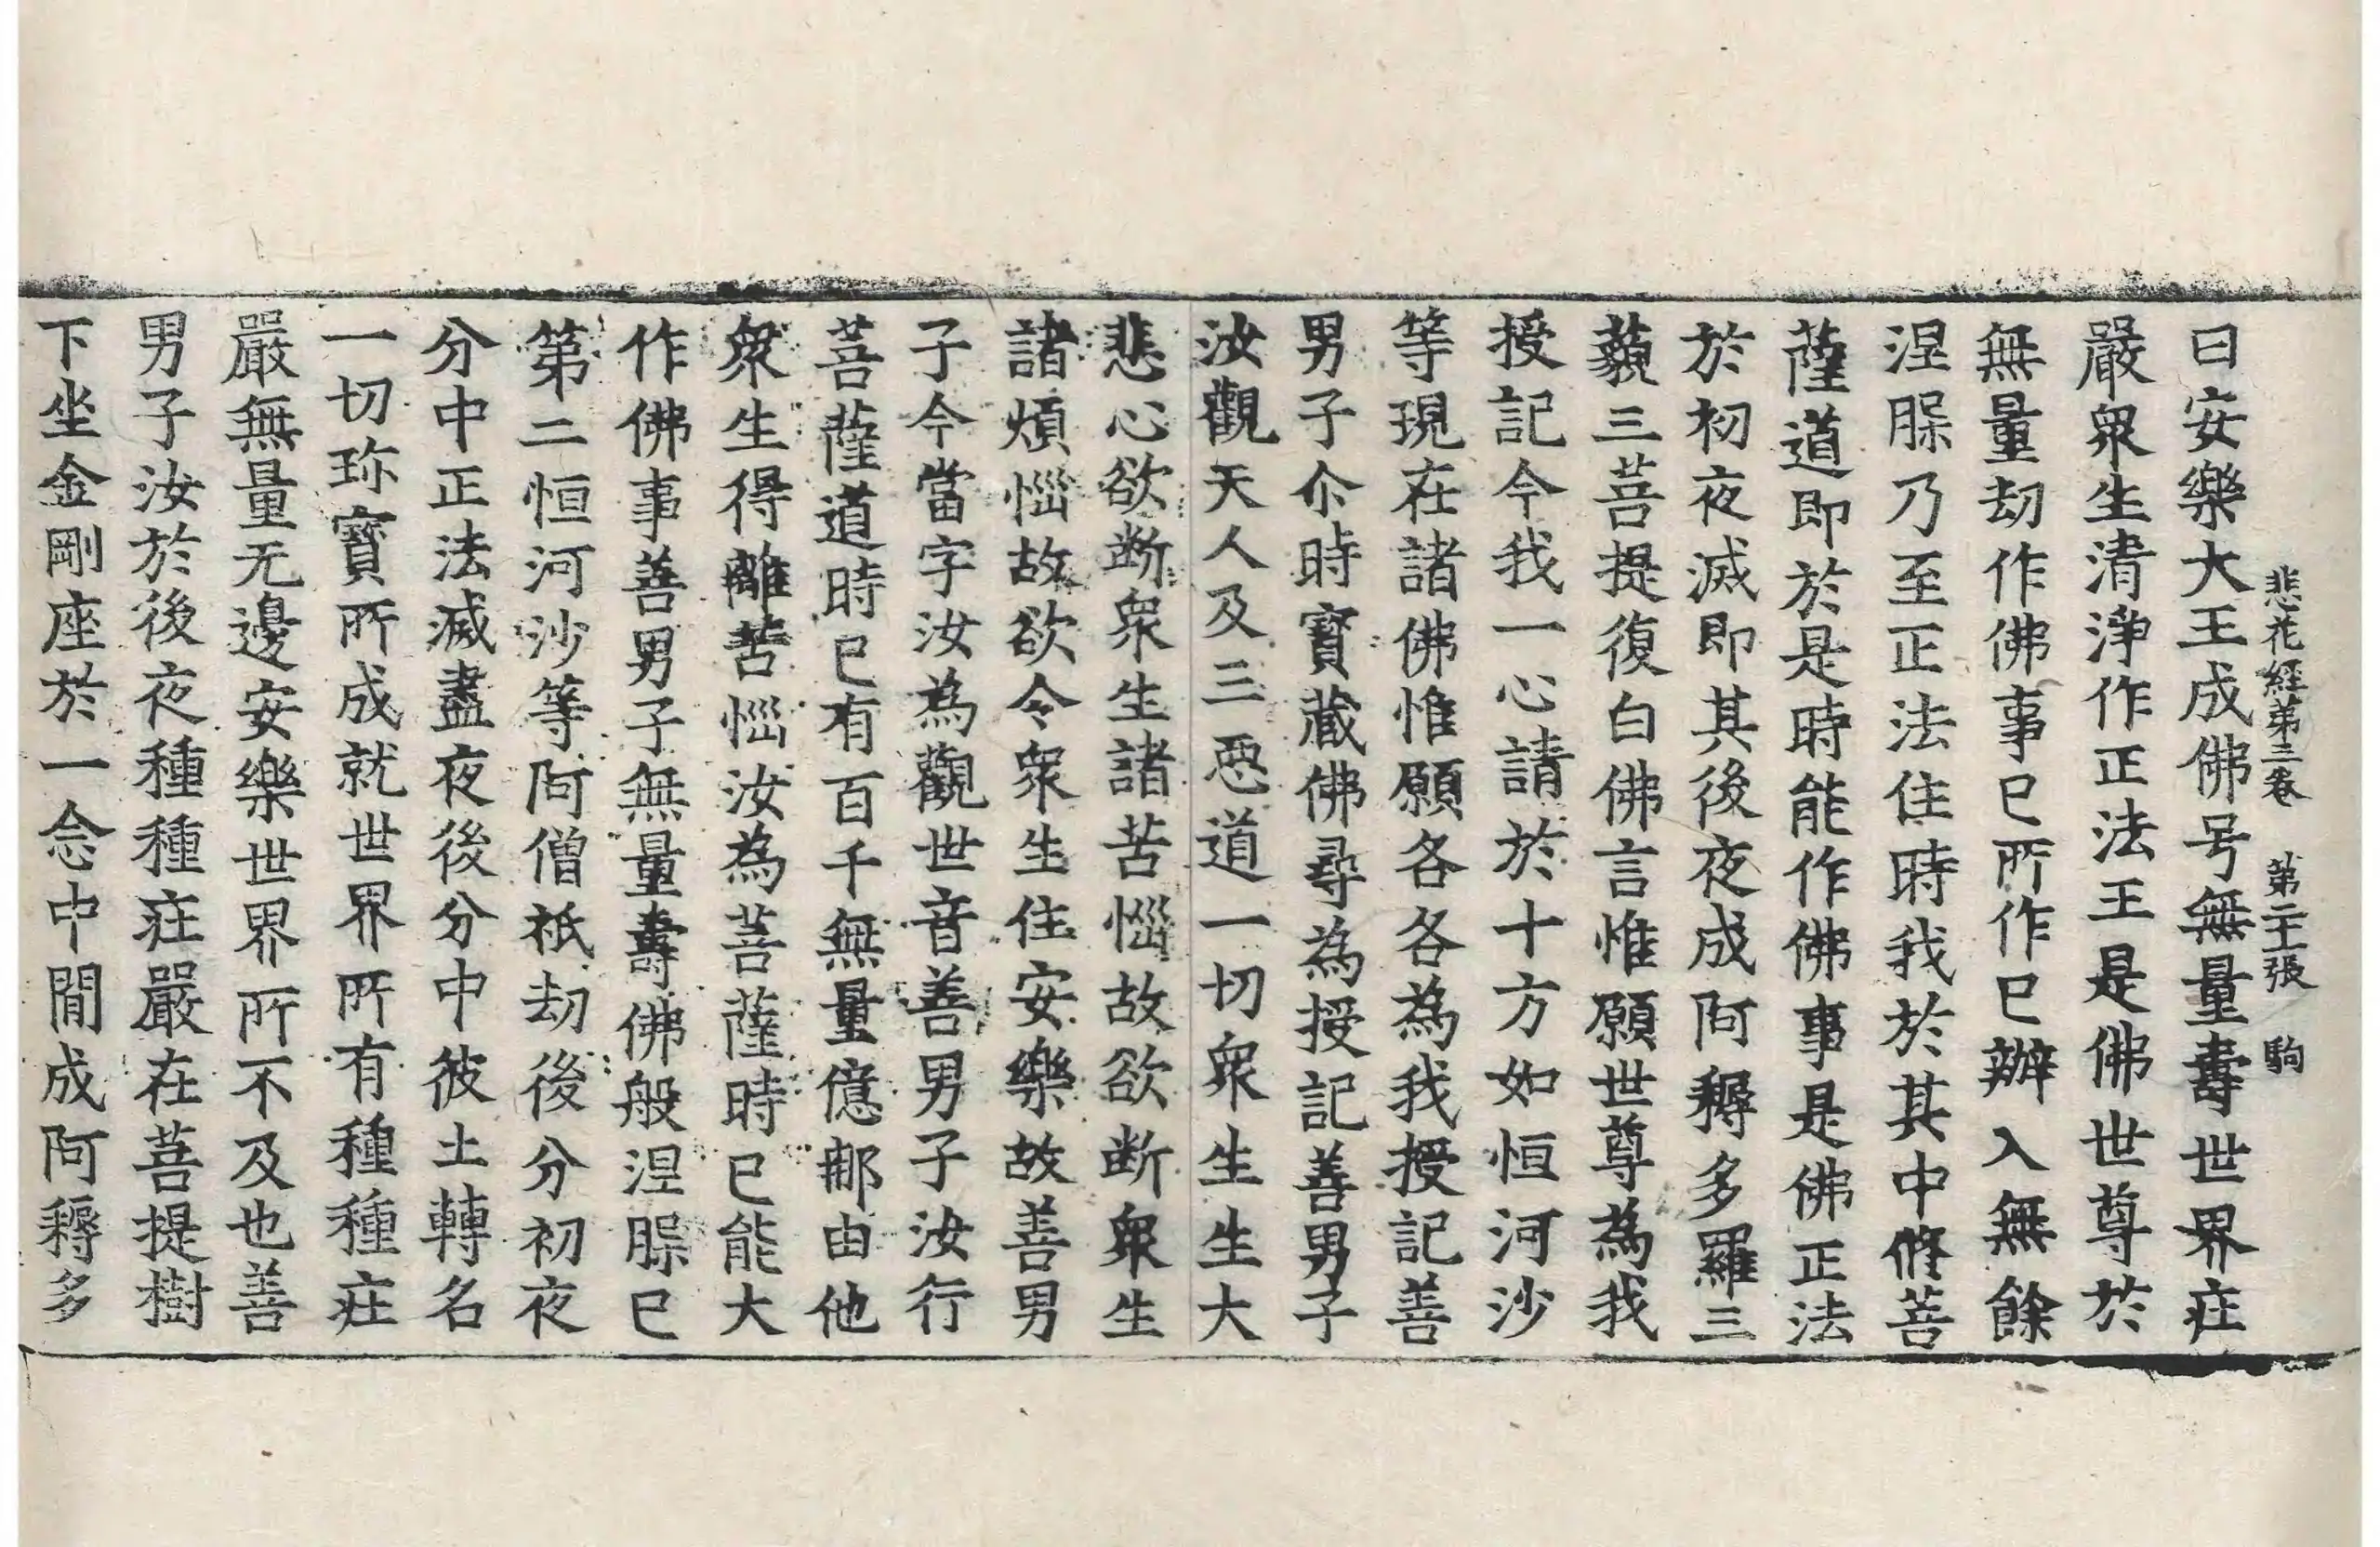 悲花經第三卷 第二十張 駒
曰安樂大王成佛号無量壽世界㽵
嚴衆生清淨作正法王是佛世尊於
無量劫作佛事已所作已辦入無餘
涅槃乃至正法住時我於其中修菩
薩道即於是時能作佛事是佛正法
於初夜滅即其後夜成阿耨多羅三
藐三菩提復白佛言惟願世尊為我
授記今我一心請於十方如恒河沙
等現在諸佛惟願各各為我授記善
男子尒時寶藏佛尋為授記善男子
汝觀天人及三惡道一切衆生生大
悲心欲断衆生諸苦惱故欲断衆生
諸煩惱故欲令衆生住安樂故善男
子今當字汝為觀世音善男子汝行
菩薩道時已有百千無量億那由他
衆生得離苦惱汝為菩薩時已能大
作佛事善男子無量壽佛般涅槃已
第二恒河沙等阿僧祇劫後分初夜
分中正法滅盡夜後分中彼土轉名
一切珎寶所成就世界所有種種㽵
嚴無量无邊安樂世界所不及也善
男子汝於後夜種種㽵嚴在菩提樹
下坐金剛座於一念中間成阿耨多